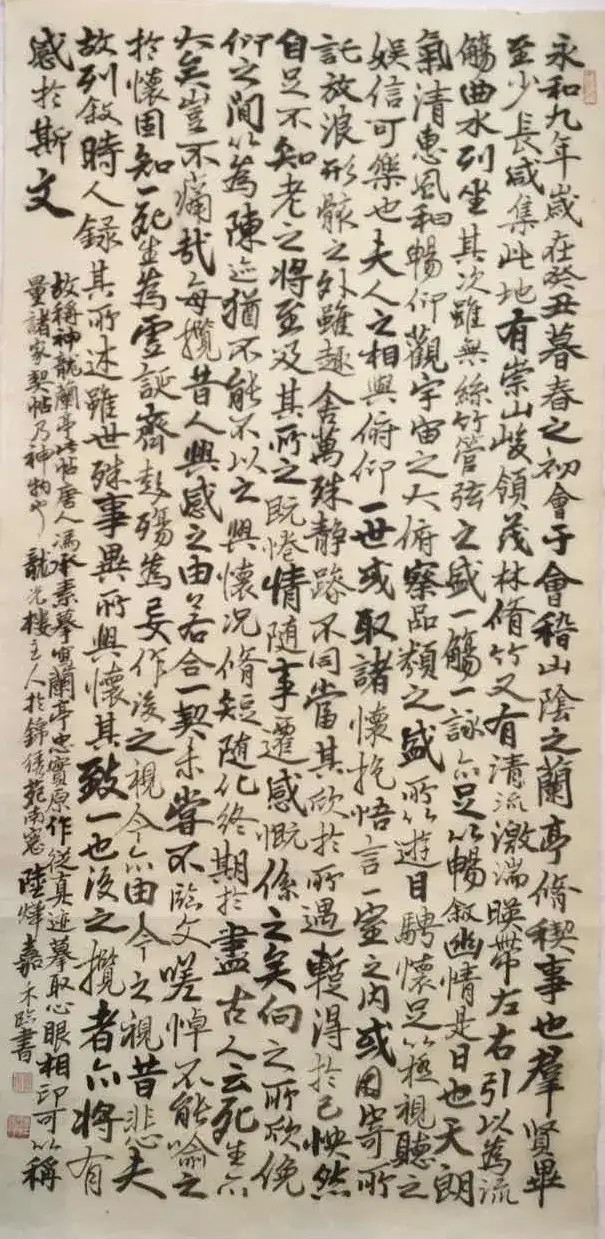 永和九年歲在癸丑暮春之初會于會稽山陰之蘭亭脩稧事也羣賢畢
至少長咸集此地有崇山峻領茂林脩竹又有清流激湍暎帶左右引以為流
觴曲水列坐其次雖無絲竹管弦之盛一觴一詠亦足以暢叙幽情是日也天朗
氣清惠風和暢仰觀宇宙之大俯察品類之盛所以遊目騁懷足以極視聽之
娛信可樂也夫人之相與俯仰一世或取諸懷抱悟言一室之内或因寄所
託放浪形骸之外雖趣舍萬殊静躁不同當其欣於所遇暫得於己怏然
自足不知老之將至及其所之既惓情隨事遷感慨係之矣向之所欣俛
仰之間以為陳迹猶不能不以之興懷況脩短隨化終期於盡古人云死生亦
大矣豈不痛哉每攬昔人興感之由若合一契未嘗不臨文嗟悼不能喻之
於懷固知一死生為虛誕齊彭殤為妄作後之視今亦由今之視昔悲夫
故列叙時人錄其所述雖世殊事異所以興懷其致一也後之攬者亦將有
感於斯文
故稱神龍蘭亭此帖唐人馮承素摹寫蘭亭忠實原作從真迹摹取心眼相印可以稱
量諸家契帖乃神物也 龍光樓主人於錦綉苑南窓 陸燁 嘉禾臨書